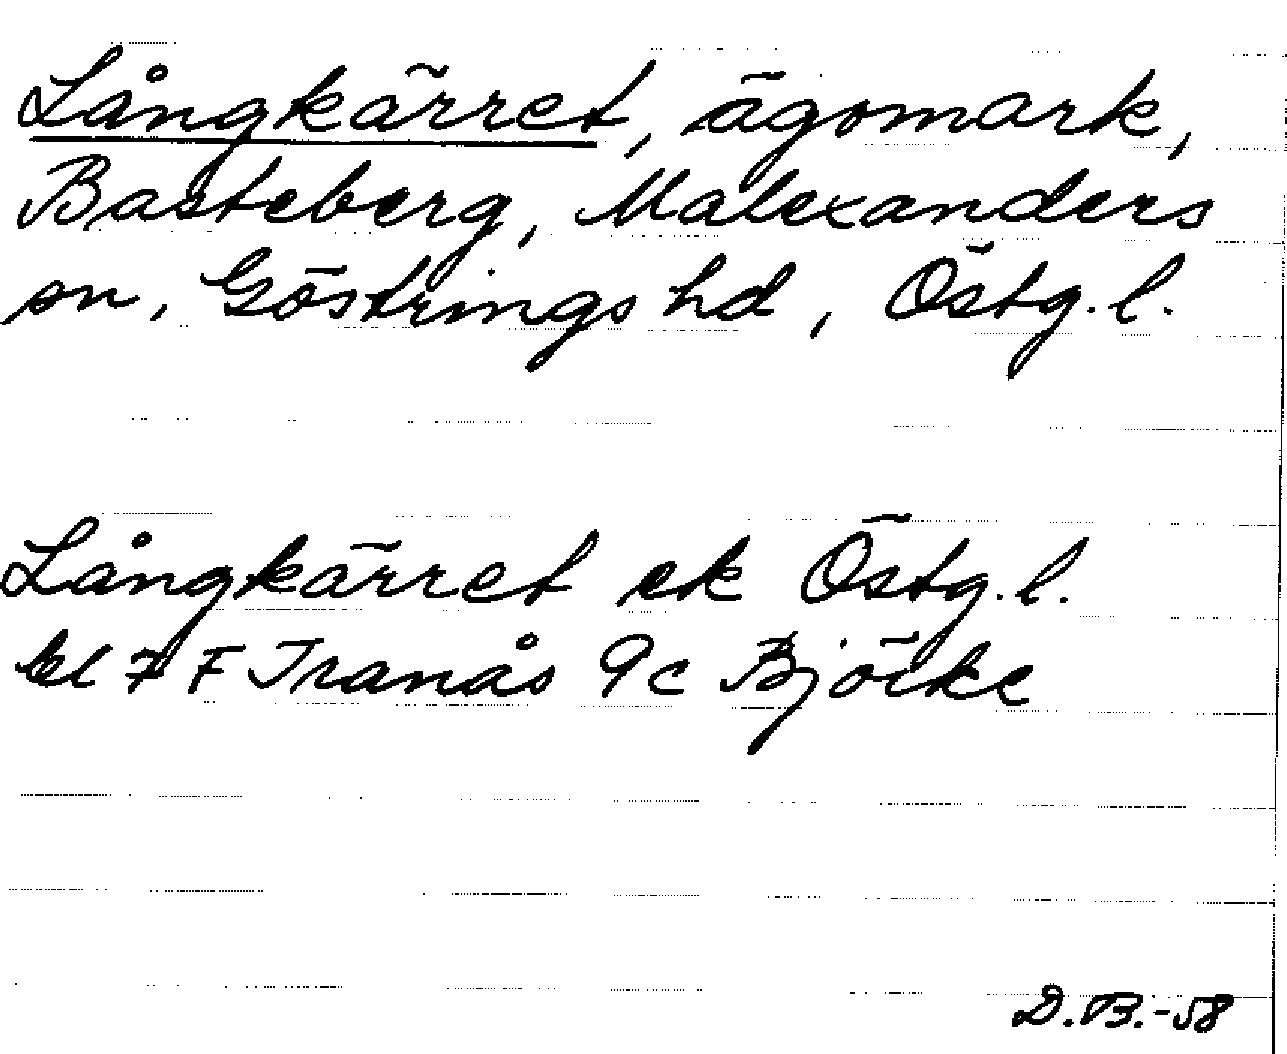 Långkärret, ägomark,
Basteberg, Malexanders
sn, Göstrings hd, Östg. l.
Långkärret ek Östg. l.
bl 7 F Tranås 9c Björke
D.B.-58